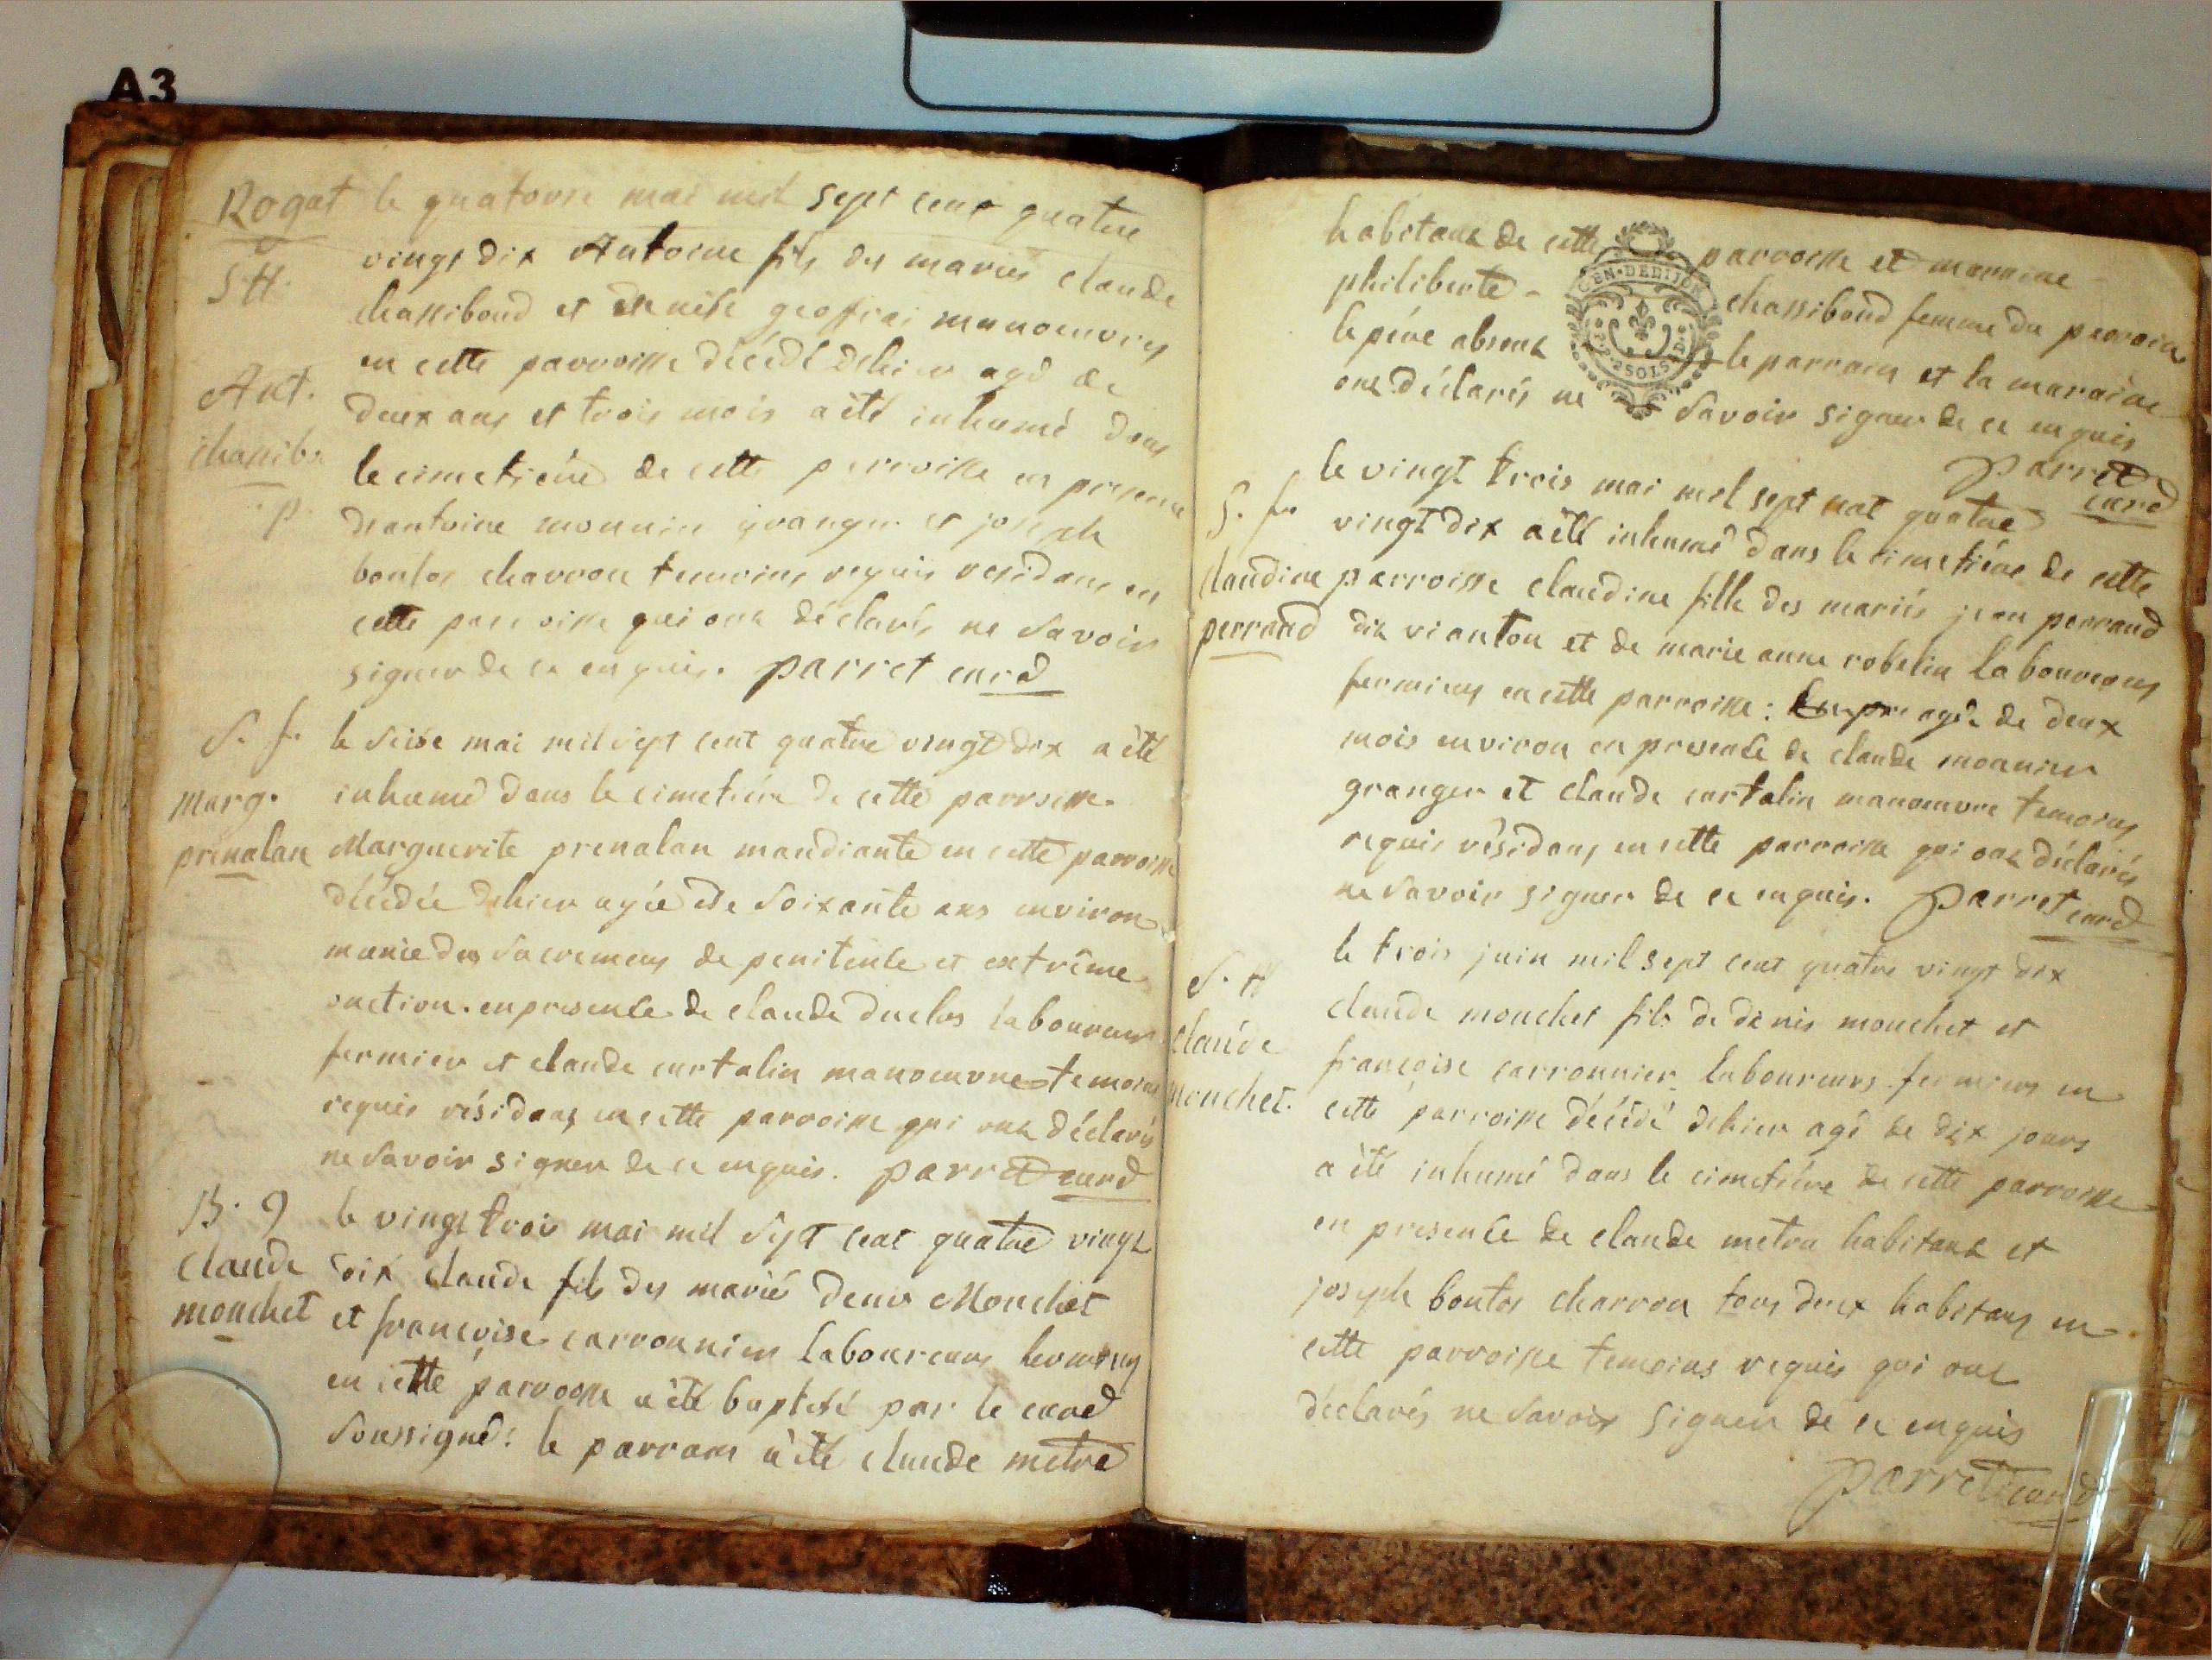 A3
Rogat le quatorze mai mil sept cent quatre
S H. vingt dix Antoine fils des mariés claude
chassiboud et denise geoffrai manoeuvres
en cette parroisse décédé dehier agé de
Ant. deux ans et trois mois a été inhumé dans
chassibo. le cimetière de cette parroisse en presence
p. d'antoine monnier granger et joseph
boutor charron temoins requis residans en
cette parroisse qui ont déclarés ne savoir
signer de ce enquis. parret curé
S. f. le seise mai mil sept cent quatre vingt dix a été
inhumé dans le cimetière de cette parroisse
Marg. prenalan Marguerite prenalan mandiante en cette parroisse
décédée dehier agée de soixante ans environ
munie des sacremens de penitence et extrême
onction. en presence de claude duclos laboureur
fermier et claude curtalin manoeuvre temoins
requis résidans en cette parroisse qui ont déclarés
ne savoir signer de ce enquis. parret curé
B. 9 le vingt trois mai mil sept cent quatre vingt
claude dix claude fils des mariés denis Mouchet
mouchet et françoise carronnier laboureurs fermiers
en cette parroisse a été baptisé par le curé
soussigné: le parrain a été claude metra
habitant de cette parroisse et maraine
philiberte - chassiboud femme du parrain
le père absent le parrain et la maraine
ont déclarés ne savoir signer de ce enquis
GEN. DE DIJON
2 SOLS
parret
curé
le vingt trois mai mil sept cent quatre
S. f. vingt dix a été inhumé dans le cimetière de cette
claudine parroisse claudine fille des mariés jean perraud
perraud dit vianton et de marie anne robelin laboureurs
fermiers en cette parroisse: agée de deux
mois environ en presence de claude monnier
granger et claude curtalin manoeuvre temoins
requis résidans en cette parroisse qui ont déclarés
ne savoir signer de ce enquis. parret curé
le trois juin mil sept cent quatre vingt dix
S. H claude mouchet fils de denis mouchet et
claude françoise carronnier laboureurs fermiers en
mouchet. cette parroisse décédé dehier agé de dix jours
a été inhumé dans le cimetière de cette parroisse
en presence de claude metra habitant et
joseph boutor charron tous deux habitans en
cette parroisse temoins requis qui ont
déclarés ne savoir signer de ce enquis
parret curé